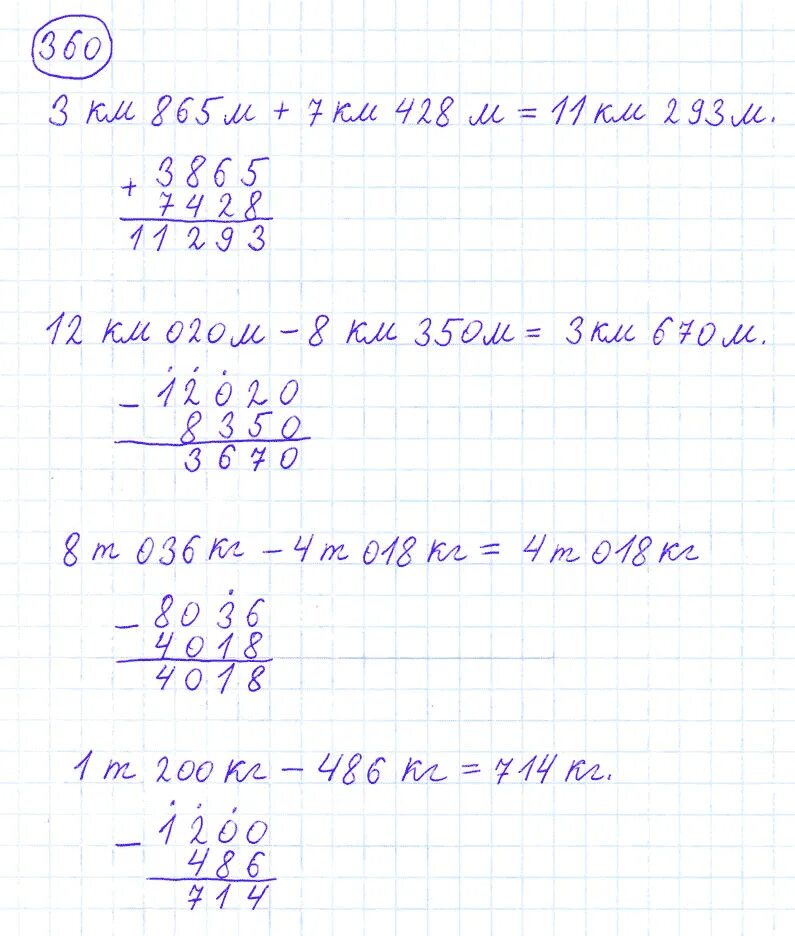 360
3 км 865 м + 7 км 428 м = 11 км 293 м.
+ 3865
7428
11293
12 км 020 м - 8 км 350 м = 3 км 670 м.
- 12020
8350
3670
8 т 036 кг - 4 т 018 кг = 4 т 018 кг
- 8036
4018
4018
1 т 200 кг - 486 кг = 714 кг.
- 1200
486
714